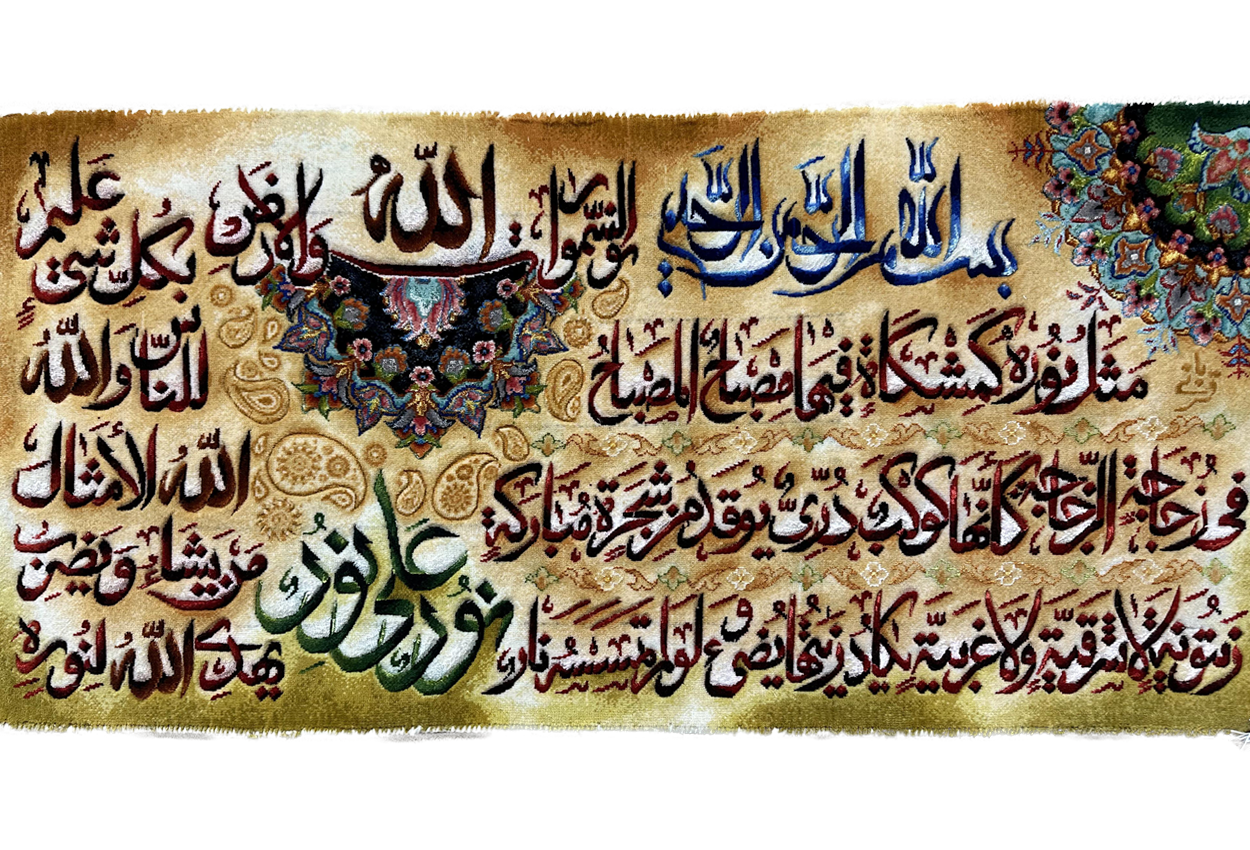 بسم الله الرحمن الرحیم
الله نور السموات والارض
مثل نوره كمشكاة فيها مصباح المصباح
فى زجاجة الزجاجة كأنها كوكب درى يوقد من شجرة مباركة
زيتونة لا شرقية ولا غربية يكاد زيتها يضىء ولو لم تمسسه نار
نور على نور
يهدى الله لنوره
من يشاء ويضرب
الله الأمثال
للناس والله
بكل شىء عليم